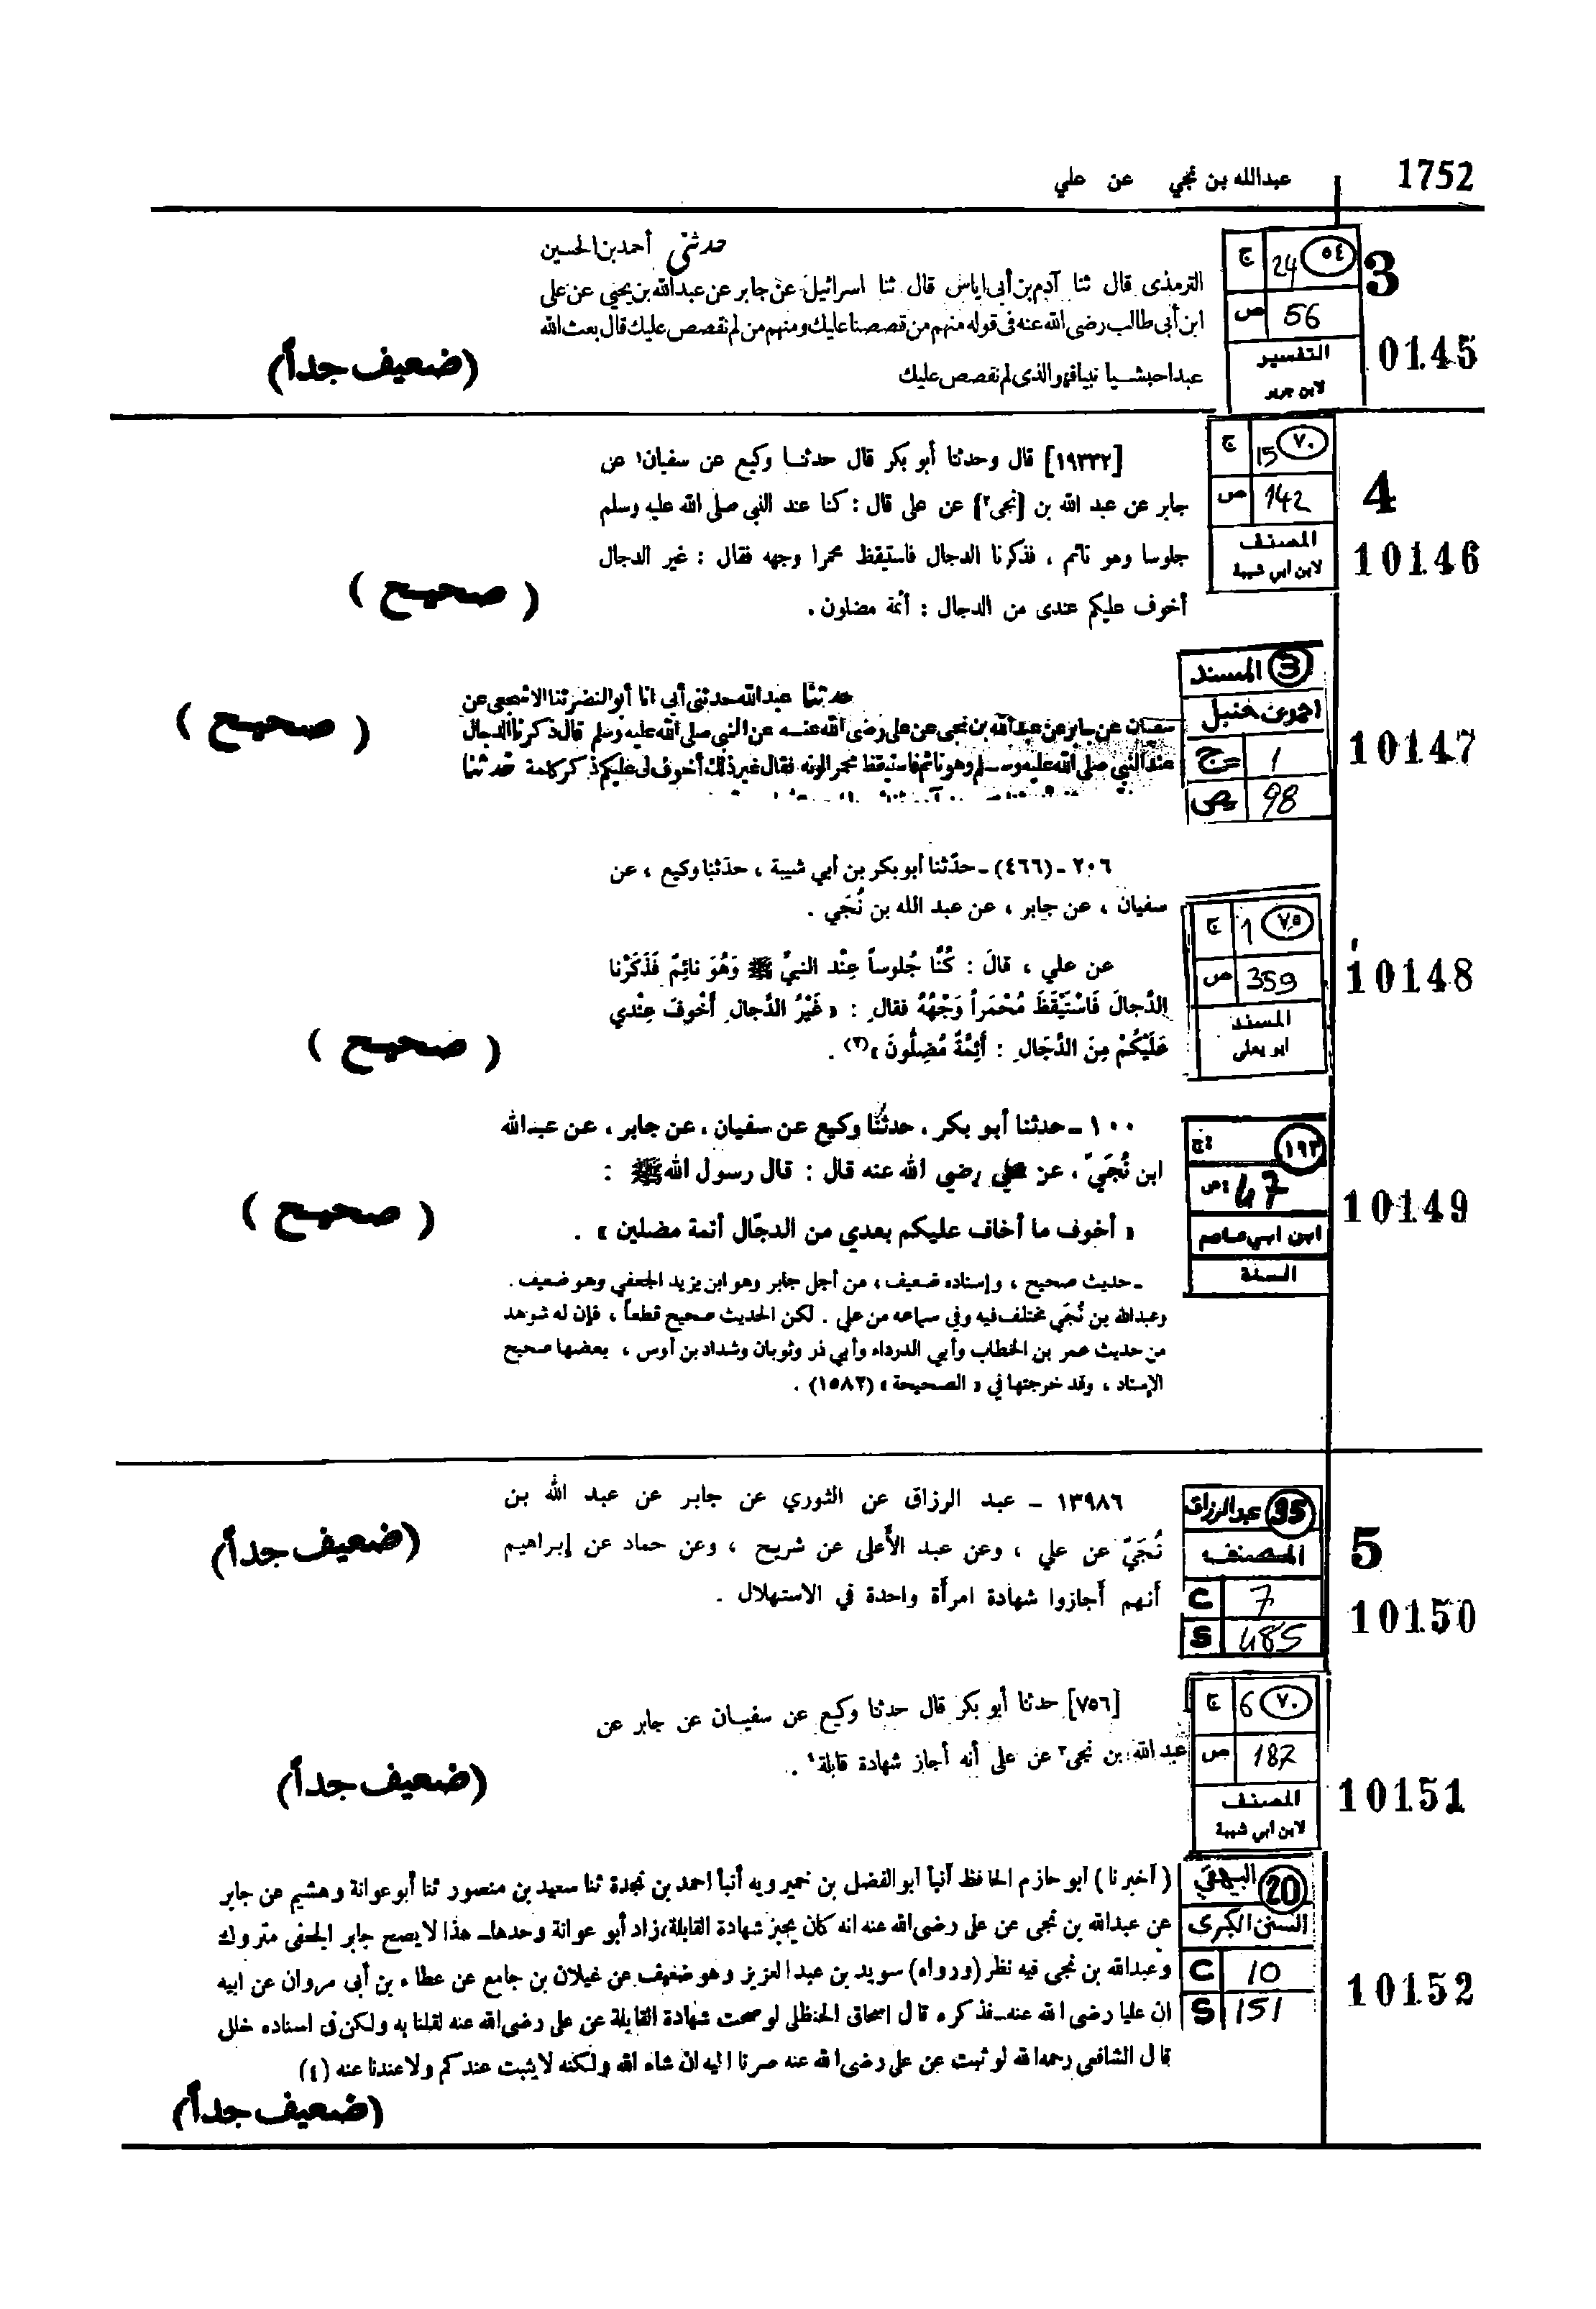 1752
عبدالله بن نجي عن علي
3
0145
ج 24 ٥٤
ص 56
التفسير
لابن جرير
حدثني أحمد بن الحسين
الترمذى قال ثنا آدم بن أبى اياس قال ثنا اسرائيل عن جابر عن عبد الله بن يحيى عن على
ابن أبى طالب رضى الله عنه فى قوله منهم من قصصنا عليك ومنهم من لم نقصص عليك قال بعث الله
عبدا حبشيا نبيا فهو الذى لم نقصص عليك
(ضعيف جداً)
4
10146
ج 15 ٧٠
ص 142
المصنف
لابن ابي شيبة
[١٩٣٣٢] قال وحدثنا أبو بكر قال حدثنا وكيع عن سفيان١ عن
جابر عن عبد الله بن [نجى٢] عن على قال : كنا عند النبى صلى الله عليه وسلم
جلوسا وهو نائم ، فذكرنا الدجال فاستيقظ محمرا وجهه فقال : غير الدجال
أخوف عليكم عندى من الدجال : أئمة مضلون .
( صحيح )
10147
3 المسند
احمد بن حنبل
ج 1
ص 98
حدثنا عبد الله حدثنى أبى انا أبو النضر ثنا الاشجعى عن
سفيان عن جابر عن عبد الله بن نجى عن على رضى الله عنه عن النبى صلى الله عليه وسلم قال ذكرنا الدجال
عند النبى صلى الله عليه وسلم وهو نائم فاستيقظ محمر الونه فقال غير ذلك أخوف لى عليكم ذكر كلمة حدثنا
( صحيح )
10148
ج 1 ٧٥
ص 359
المسند
ابو يعلى
٢٠٦ - (٤٦٦) - حدّثنا أبو بكر بن أبي شيبة ، حدّثنا وكيع ، عن
سفيان ، عن جابر ، عن عبد الله بن نُجَي .
عن علي ، قالَ : كُنَّا جُلوساً عِنْد النبيِّ ﷺ وَهُوَ نائِمٌ فَذَكَرْنا
الدَّجالَ فَاسْتَيْقَظَ مُحْمَراً وَجْهُهُ فقالَ : « غَيْرُ الدَّجالِ أَخْوفُ عِنْدي
عَلَيْكُمْ مِنَ الدَّجَالِ : أَئِمَّةٌ مُضِلُّونَ »(٣) .
( صحيح )
10149
ج: ١٩٣
ص: 47
ابن ابي عاصم
السنة
١٠٠ - حدثنا أبو بكر ، حدثنا وكيع عن سفيان ، عن جابر ، عن عبدالله
ابن نُجَيّ ، عن علي رضي الله عنه قال : قال رسول الله ﷺ :
« أخوف ما أخاف عليكم بعدي من الدجّال أئمة مضلين » .
( صحيح )
- حديث صحيح ، وإسناده ضعيف ، من أجل جابر وهو ابن يزيد الجعفي وهو ضعيف .
وعبدالله بن نُجَي مختلف فيه وفي سماعه من علي . لكن الحديث صحيح قطعاً ، فإن له شوهد
من حديث عمر بن الخطاب وأبي الدرداء وأبي ذر وثوبان وشداد بن أوس ، بعضها صحيح
الإسناد ، وقد خرجتها في « الصحيحة » (١٥٨٢) .
5
10150
35 عبد الرزاق
المصنف
C 7
S 485
١٣٩٨٦ - عبد الرزاق عن الثوري عن جابر عن عبد الله بن
نُجَيّ عن علي ، وعن عبد الأَعلى عن شريح ، وعن حماد عن إبراهيم
أَنهم أَجازوا شهادة امرأَة واحدة في الاستهلال .
(ضعيف جداً)
10151
ج 6 ٧٠
ص 187
المصنف
لابن ابي شيبة
[٧٥٦] حدثنا أبو بكر قال حدثنا وكيع عن سفيان عن جابر عن
عبد الله بن نجى٣ عن على أنه أجاز شهادة قابلة٤ .
(ضعيف جداً)
10152
20 البيهقي
السنن الكبرى
C 10
S 151
( أخبرنا ) ابو حازم الحافظ أنبأ ابو الفضل بن خميرويه أنبأ احمد بن نجدة ثنا سعيد بن منصور ثنا أبو عوانة وهشيم عن جابر
عن عبدالله بن نجى عن على رضى الله عنه انه كان يجيز شهادة القابلة، زاد أبو عوانة وحدها- هذا لا يصح جابر الجعفى متروك
وعبدالله بن نجى فيه نظر (ورواه) سويد بن عبد العزيز وهو ضعيف عن غيلان بن جامع عن عطاء بن أبى مروان عن ابيه
ان عليا رضى الله عنه-فذكره قال اسحاق الحنظلى لو صحت شهادة القابلة عن على رضى الله عنه لقلنا به ولكن فى اسناده خلل
قال الشافعى رحمه الله لو ثبت عن على رضى الله عنه صرنا اليه ان شاء الله ولكنه لا يثبت عندكم ولا عندنا عنه (٤)
(ضعيف جداً)